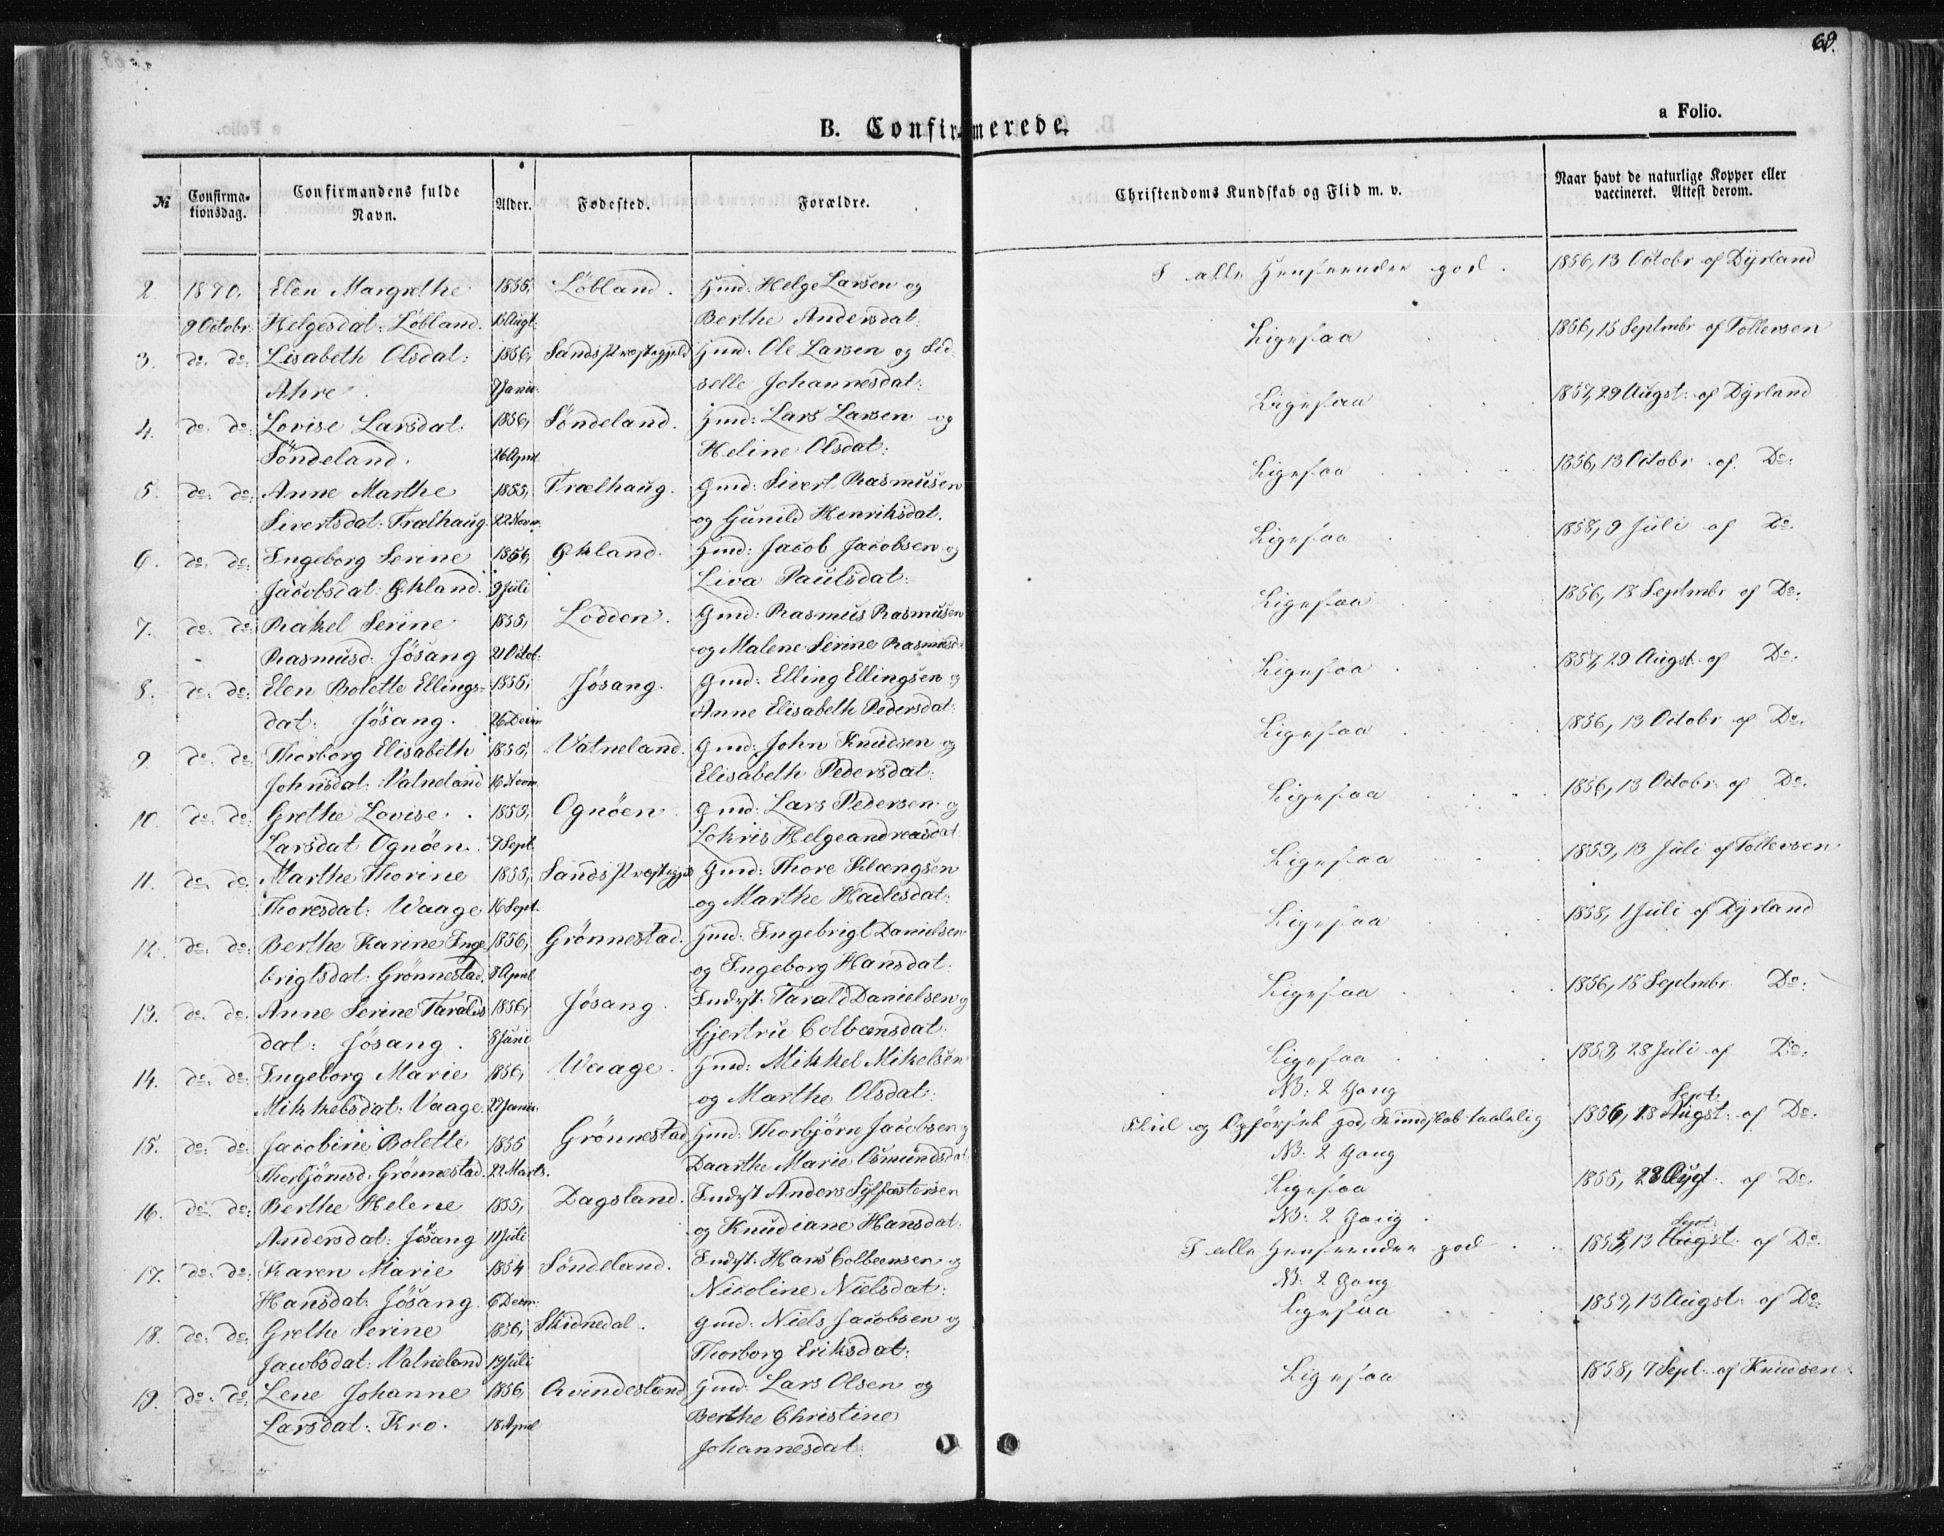 68.
a Folio.
B. Confirmerede.
№ | Confirma-tionsdag. | Confirmandens fulde Navn. | Alder. | Fødested. | Forældre. | Christendoms Kundskab og Flid m. v. | Naar havt de naturlige Kopper eller vaccineret. Attest derom.
2. | 1870, | Elen Margrethe | 1855, | Löbland. | Gmd: Helge Larsen og | I alle Henseender god. | 1856, 13 Octobr af Dyrland
9 Octobr: | Helgesdat: Löbland. | 15 Augt: | Berthe Andersdat:
3. | do: do: | Lisabeth Olsdat: | 1856, | Sands Præstegjeld | Gmd: Ole Larsen og Sid- | Ligesaa | 1856, 15 Septmbr af Tollersen
Ahre. | 7 Janu: | selle Johannesdat:
4. | do: do: | Lovise Larsdat: | 1856, | Söndeland. | Gmd: Lars Larsen og | Ligesaa | 1857, 29 Augst: af Dyrland
Söndeland. | 26 April | Heline Olsdat:
5. | do: do: | Anne Marthe | 1855, | Trælhaug. | Gmd: Sivert Rasmusen | Ligesaa | 1856, 13 Octobr af Do:
Sivertsdat: Trælhaug. | 22 Novm. | og Gunild Henriksdat.
6. | do: do: | Ingeborg Serine | 1856, | Økland. | Gmd: Jacob Jacobsen og | Ligesaa | 1858, 9 Juli af Do:
Jacobsdat: Økland. | 9 Juli | Liva Paulsdat:
7. | do: do: | Rakel Serine | 1855, | Lodden. | Gmd: Rasmus Rasmusen | Ligesaa | 1856, 18 Septmbr af Do:
Rasmusd: Jösang | 21 Octob: | og Malene Serine Rasmusd:
8. | do: do: | Elen Bolette Ellings- | 1855, | Jösang. | Gmd: Elling Ellingsen og | Ligesaa | 1857, 29 Augst: af Do:
dat: Jösang. | 26 Decm | Anne Elisabeth Pedersdat:
9 | do: do: | Thorborg Elisabeth | 1855, | Vatneland. | Gmd: John Knudsen og | Ligesaa | 1856, 13 Octobr af Do:
Johnsdat: Vatneland | 16 Novm. | Elisabeth Pedersdat:
10. | do: do: | Grethe Lovise | 1853, | Ognöen. | Gmd: Lars Pedersen og | Ligesaa | 1856, 13 Octobr: af Do:
Larsdat Ognöen. | 7 Sept. | Helgeandreasdat
11. | do: do: | Marthe Thorine | 1855, | Sands Præstegjeld | Gmd: Thore Klængsen | Ligesaa | 1859, 13 Juli af Tollersen
Thoresdat: Waage | 16 Sept. | og Marthe Hadlesdat:
12. | do: do: | Berthe Karine Inge | 1856, | Grönnestad. | Gmd: Ingebrigt Danielsen | Ligesaa | 1858, 1 Juli af Dyrland
brigtsdat: Grönnestad. | 8 April | og Ingeborg Hansdat:
13. | do: do: | Anne Serine Taralds | 1856, | Jösang. | Indst: Tarald Danielsen og | Ligesaa | 1856, 18 Septmbr Do:
dat: Jösang. | 8 Juni | Gjertru Colbensdat:
14. | do: do: | Ingeborg Marie | 1856, | Waage. | Gmd: Mikkel Mikelsen | Ligesaa | 1859, 28 Juli af Do:
Mikkelsdat: Vaage | 22 Janu: | og Marthe Olsdat: | NB: 2 Gang
15. | do: do: | Jacobine Bolette | 1855 | Grönnestad | Gmd: Thorbjörn Jacobsen og | Flid og Opförsel god, Kundskab taalelig | 1856, 18 Augst: Sept: af Do:
Thorbjörnsd: Grönnestad. | 22 Marts. | Daarthe Marie Osmundsdat: | NB: 2 Gang
16. | do: do: | Berthe Helene | 1855, | Dagsland. | Indst Anders Sylfæstersen | Ligesaa | 1855, 28 Augt. af Do:
Andersdat: Jösang | 11 Juli | og Knudiane Hansdat: | NB: 2 Gang.
17. | do: do: | Karen Marie | 1854 | Söndeland. | Indst: Hans Colbensen og | I alle Henseender god | 1855, 13 Augst: Sept: af Do:
Hansdat: Jösang. | 6 Decm: | Nicoline Nielsdat: | NB: 2 Gang
18. | do: do: | Grethe Serine | 1856, | Skidnedal. | Gmd: Niels Jacobsen og | Ligesaa | 1859, 13 Augst: af Do:
Jacobsdat: Vatneland | 19 Juli | Thorborg Eriksdat:
19. | do: do: | Lene Johanne | 1856, | Qvindesland | Gmd: Lars Olsen og | Ligesaa | 1858, 7 Sept: af Knudsen
Larsdat: Kro. | 18 April | Berthe Christine
Johannesdat: